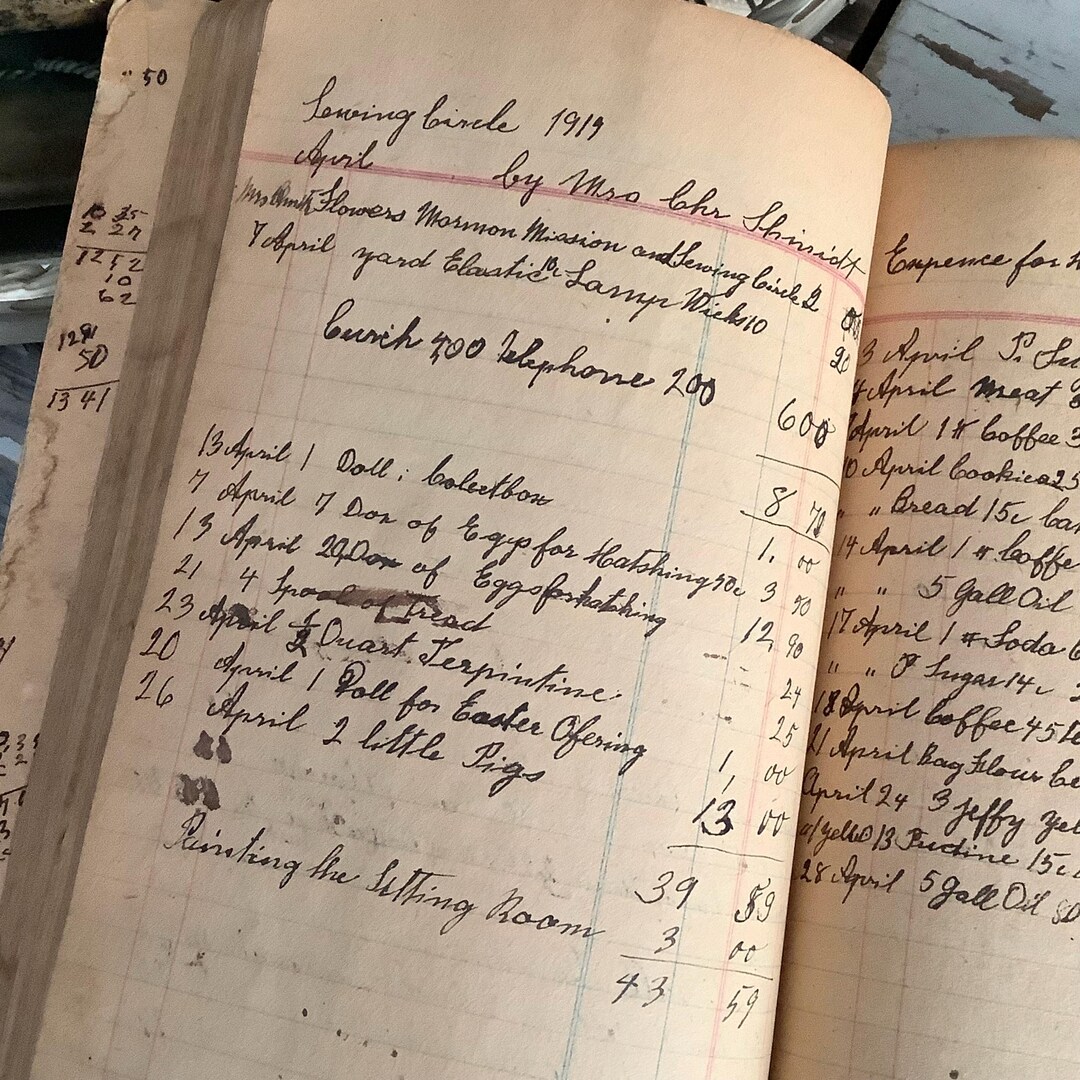 " 50
10 35
2 27
12 52
10
62
1291
50
13 41
Sewing Circle 1919
April by Mrs Chr Shmidt
Flowers Mormon Mission and Sewing Circle 2
7 April yard Elastic 10c Lamp Wicks 10 20
Curch 400 Telephone 200
600
8 70
13 April 1 Doll: Colectbox 1. 00
7 April 7 Don of Eggs for Hatshing 50c 3 50
13 April 29 Don of Eggs for hatching 12 90
21 4 Spool of Tread 24
23 April 1/2 Quart Terpintine 25
20 April 1 Doll for Easter Ofering 1 00
26 April 2 little Pigs 13 00
39 59
Painting the Sitting Room 3 00
43 59
Expence for
3 April
4 April Meat
April 1 # Coffee 3
10 April Cookies 25
" " Bread 15c
14 April 1 # Coffe
" " 5 Gall Oil
17 April 1 # Soda
" " Sugar 14c
18 April Coffee 45
21 April Bag Flour
April 24 3 Jeffy Yel
13 Fuctine 15c
28 April 5 Gall Oil